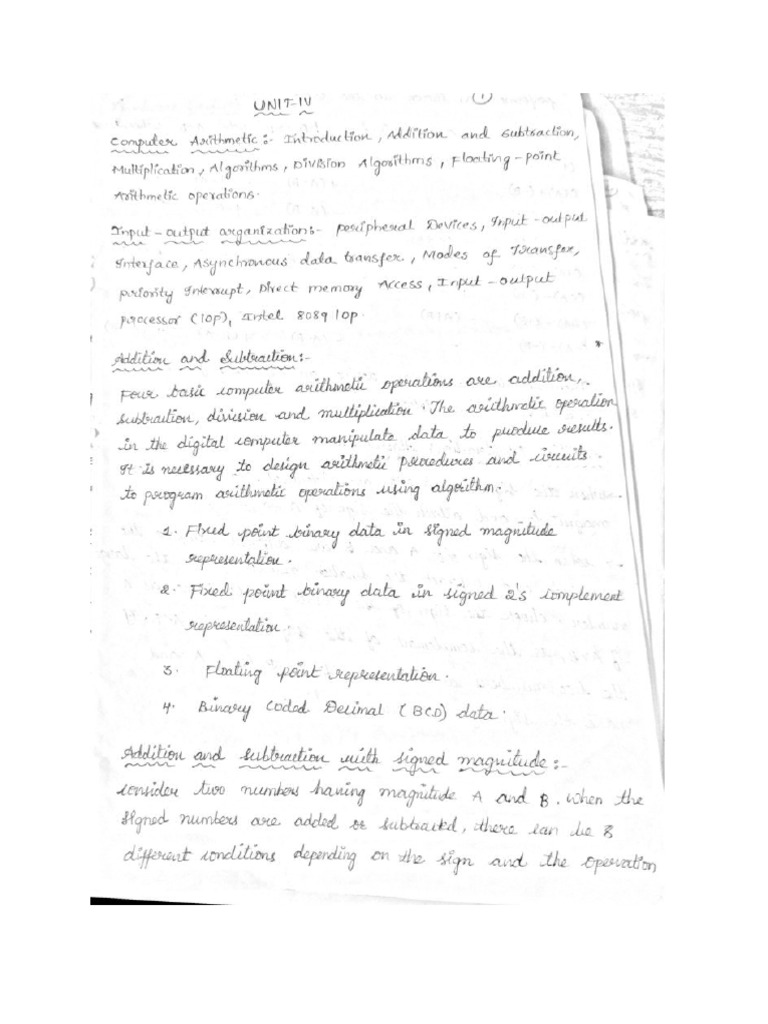 UNIT-IV
1
Computer Arithmetic:- Introduction, Addition and Subtraction,
Multiplication, Algorithms, Division Algorithms, Floating-point
Arithmetic operations.
Input-output organization:- peripheral Devices, Input-output
Interface, Asynchronous data transfer, Modes of Transfer,
priority Interrupt, Direct memory Access, Input-output
processor (IOP), Intel 8089 IOP.
Addition and Subtraction:-
Four basic computer arithmetic operations are addition,
subtraction, division and multiplication. The arithmetic operation
in the digital computer manipulate data to produce results.
It is necessary to design arithmetic procedures and circuits
to program arithmetic operations using algorithm.
1. Fixed point binary data in signed magnitude
representation.
2. Fixed point binary data in signed 2's complement
representation.
3. Floating point representation.
4. Binary Coded Decimal (BCD) data.
Addition and subtraction with signed magnitude:-
consider two numbers having magnitude A and B. When the
signed numbers are added or subtracted, there can be 8
different conditions depending on the sign and the operation